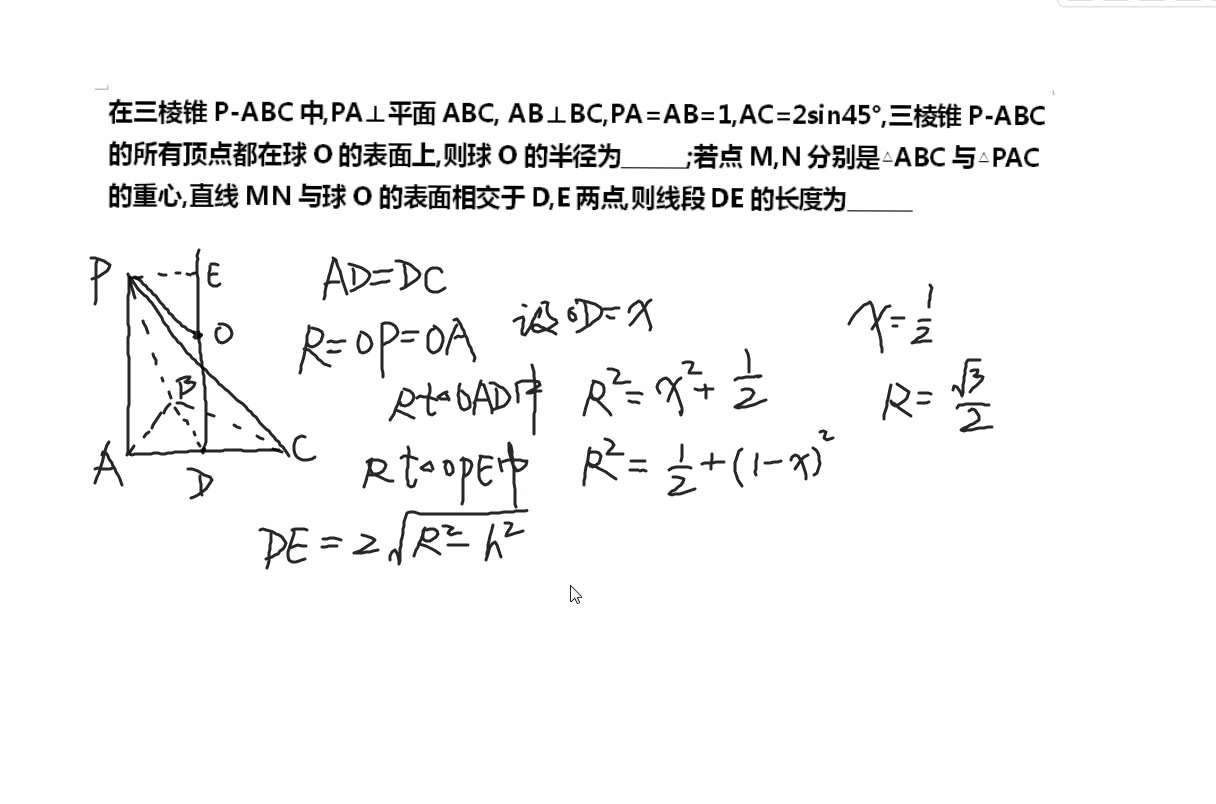 在三棱锥 P-ABC 中,PA⊥平面 ABC, AB⊥BC,PA=AB=1,AC=2sin45°,三棱锥 P-ABC
的所有顶点都在球 O 的表面上,则球 O 的半径为_____;若点 M,N 分别是△ABC 与△PAC
的重心,直线 MN 与球 O 的表面相交于 D,E 两点,则线段 DE 的长度为_____
P E
O
B
A D C
AD=DC
R=OP=OA 设OD=x x=1/2
Rt△OAD中 R²=x²+1/2 R=√3/2
Rt△OPE中 R²=1/2+(1-x)²
DE=2√(R²-h²)